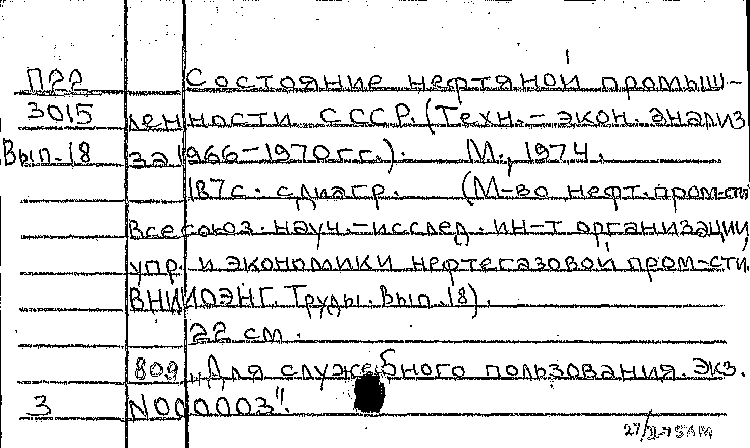 ПРР Состояние нефтяной промыш-
3015 ленности СССР. (Техн.-экон. анализ
Вып. 18 за 1966-1970 гг.). М., 1974.
187 с. с диагр. (М-во нефт. пром-сти
Всесоюз. науч.-исслед. ин-т организации
упр. и экономики нефтегазовой пром-сти.
ВНИИОЭНГ. Труды. Вып. 18).
22 см.
809 "Для служебного пользования. Экз.
3 N000003".